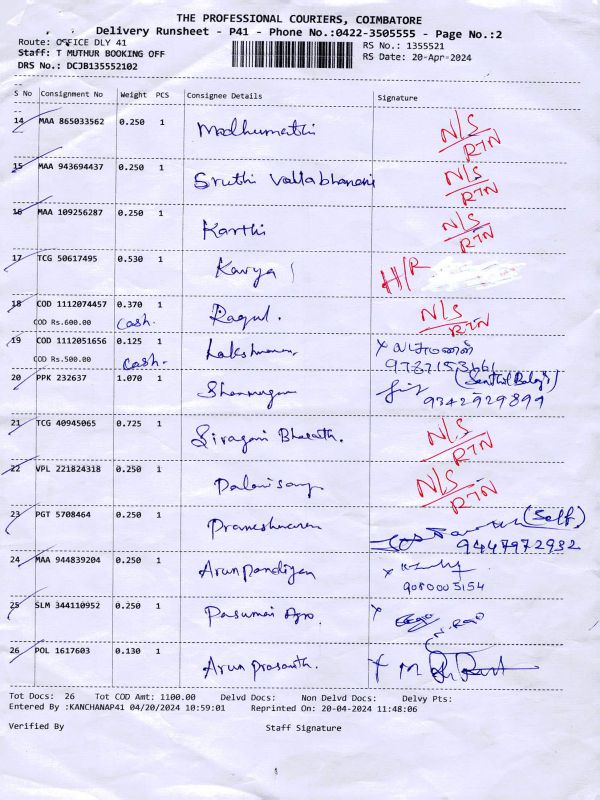 THE PROFESSIONAL COURIERS, COIMBATORE
Delivery Runsheet - P41 - Phone No.:0422-3505555 - Page No.:2
Route: OFFICE DLY 41
RS No.: 1355521
Staff: T MUTHUR BOOKING OFF
RS Date: 20-Apr-2024
DRS No.: DCJB135552102
S No Consignment No Weight PCS Consignee Details Signature
14 MAA 865033562 0.250 1 Madhumathi N/S RTN
15 MAA 943694437 0.250 1 Sruthi Vallabhaneni N/S RTN
16 MAA 109256287 0.250 1 Karthi N/S RTN
17 TCG 50617495 0.530 1 Kavya H/R
18 COD 1112074457 0.370 1 Ragul. N/S RTN
COD Rs.600.00 Cash.
19 COD 1112051656 0.125 1 Lakshmanan
COD Rs.500.00 Cash.
20 PPK 232637 1.070 1 Shanmugam (Senthil Balaji)
9342929899
21 TCG 40945065 0.725 1 Siragani Bharath. N/S RTN
22 VPL 221824318 0.250 1 Palanisamy N/S RTN
23 PGT 5708464 0.250 1 Prameshwaran (Self)
9447972932
24 MAA 944839204 0.250 1 Arunpandiyan
9080005154
25 SLM 344110952 0.250 1 Pasumai Agro.
26 POL 1617603 0.130 1 Arun Prasanth.
Tot Docs: 26 Tot COD Amt: 1100.00 Delvd Docs: Non Delvd Docs: Delvy Pts:
Entered By :KANCHANAP41 04/20/2024 10:59:01 Reprinted On: 20-04-2024 11:48:06
Verified By Staff Signature